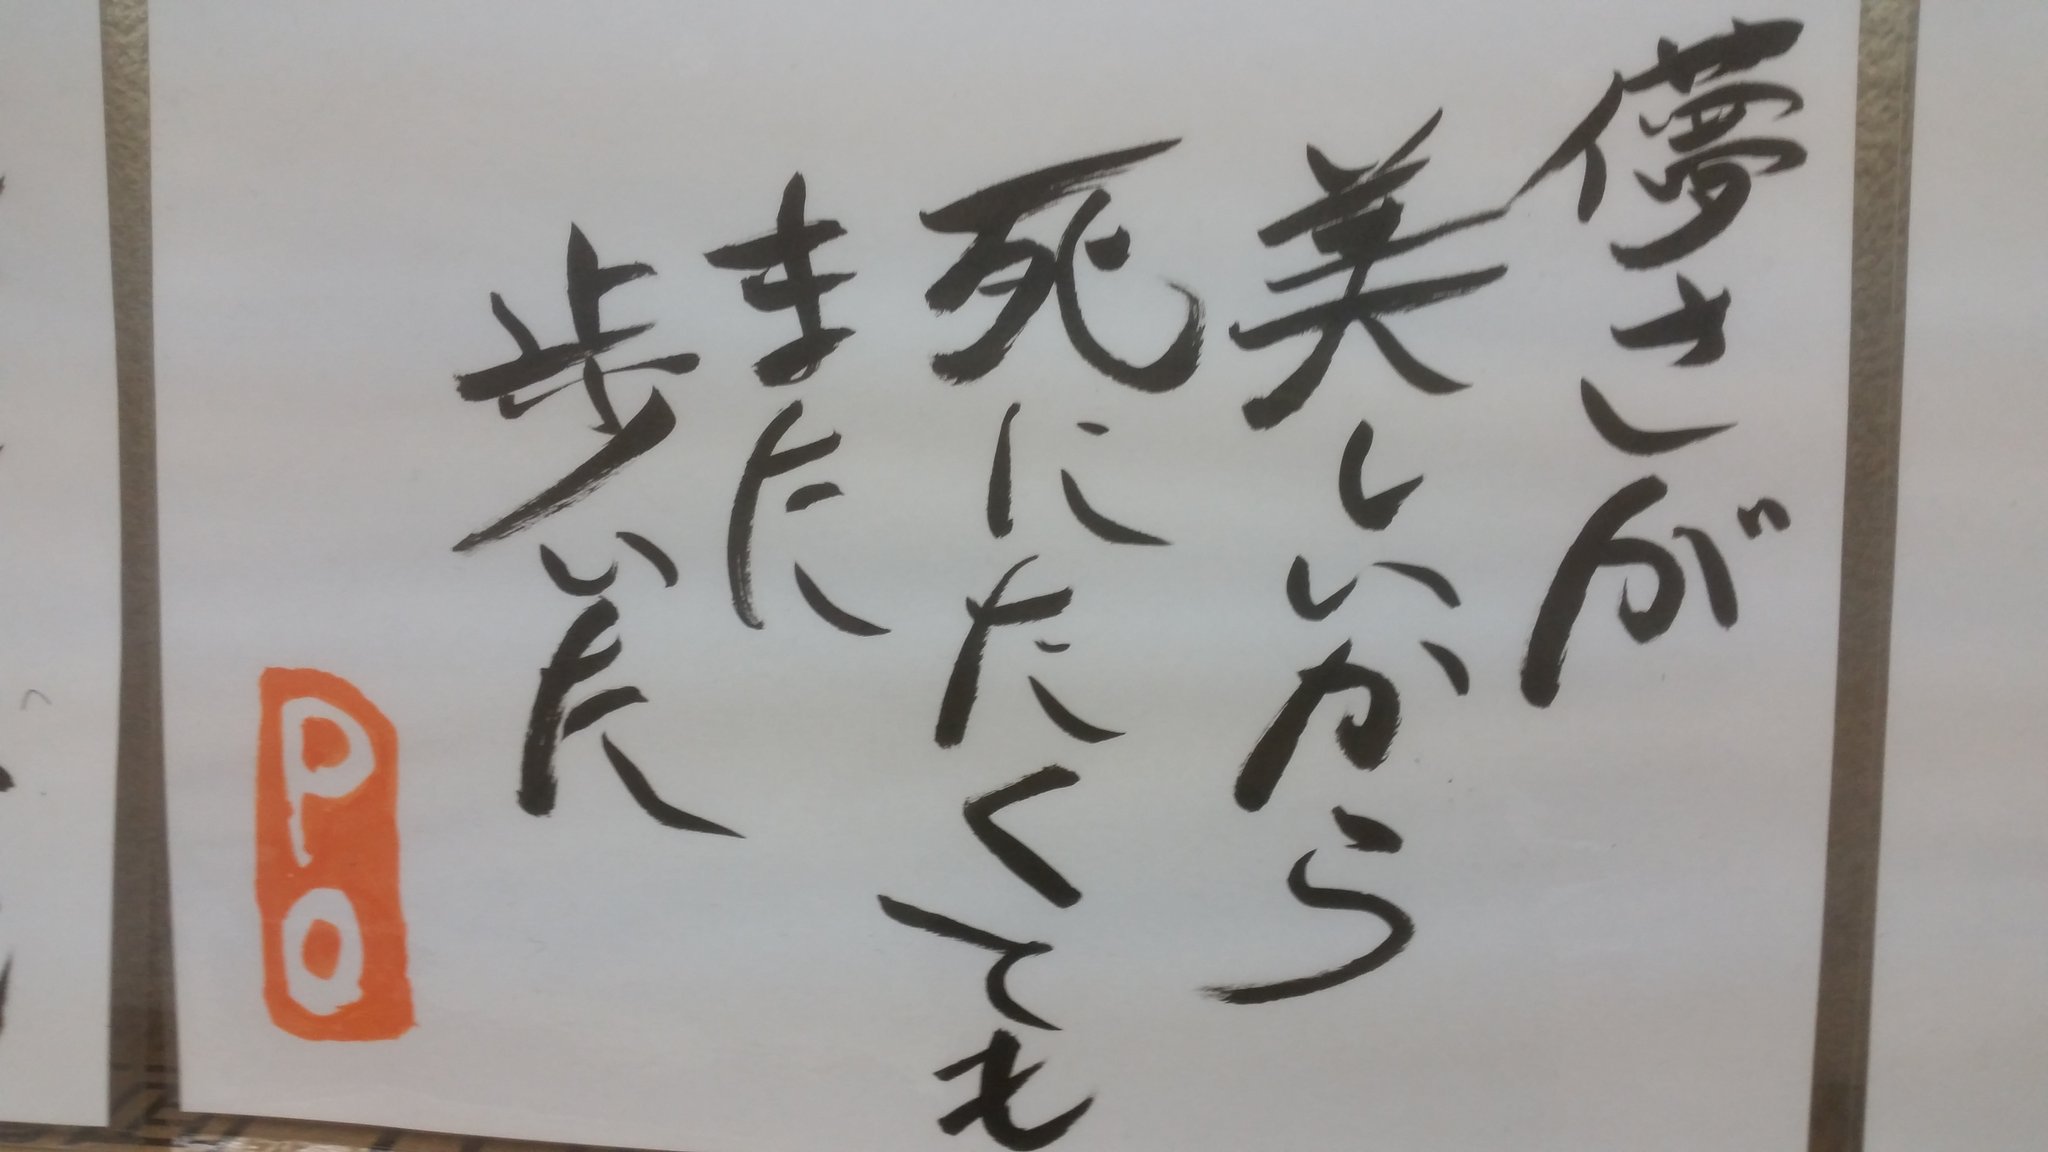 儚さが
美しいから
死にたくても
また
歩いた
PO